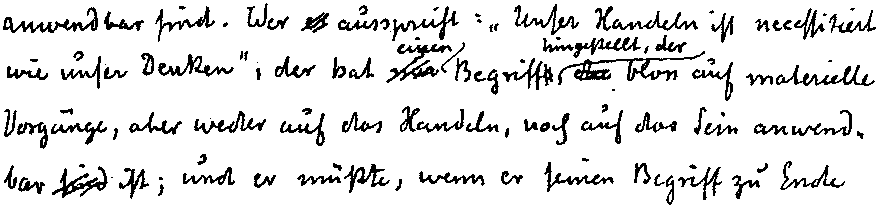 anwendbar sind. Wer es ausspricht: „Unser Handeln ist necessitiert
einen hingestellt, der
wie unser Denken“, der hat Begriff blos auf materielle
Vorgänge, aber weder auf das Handeln, noch auf das Sein anwend-
bar sind ist; und er müßte, wenn er seinen Begriff zu Ende